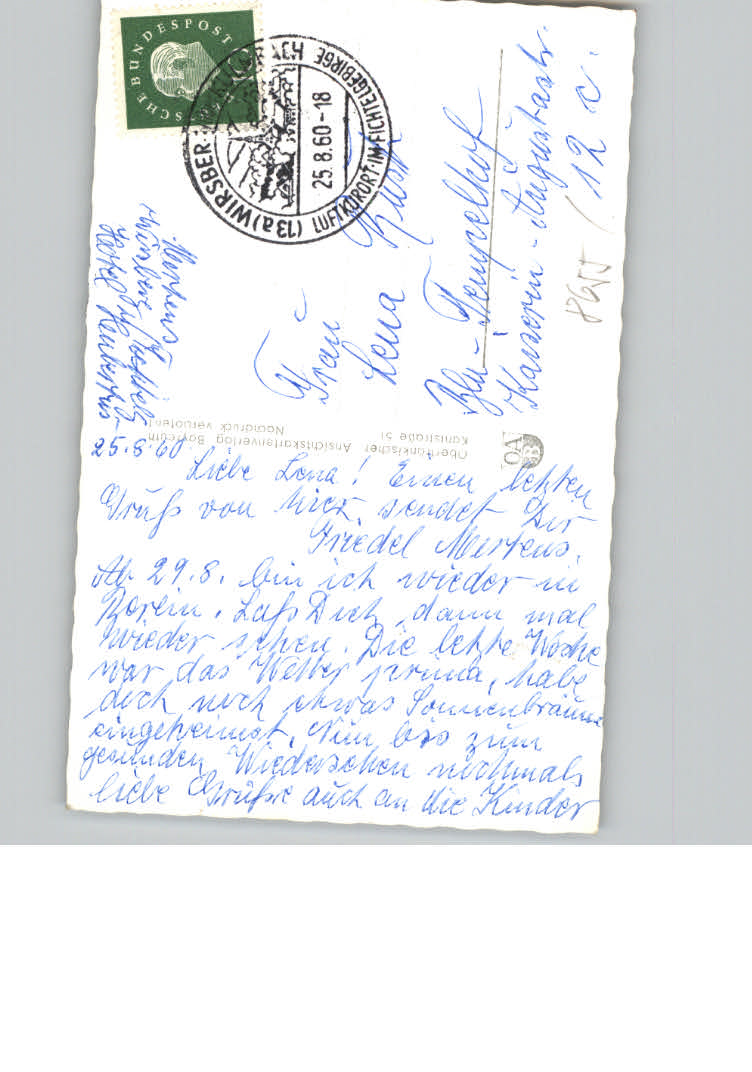 DEUTSCHE BUNDESPOST
(13a) WIRSBERG
LUFTKURORT · IM FICHTELGEBIRGE
25.8.60-18
Mertens
Hotel
Frau
Lena
Bln-Tempelhof
Kaiserin-Augustastr.
12 c.
Oberfränkischer Ansichtskartenverlag Bayreuth
Kantstraße 51
Nachdruck verboten!
OAV
25.8.60.
Liebe Lena! Einen letzten
Gruß von hier sendet Dir
Friedel Mertens.
Ab 29.8. bin ich wieder in
Berlin. Laß Dich dann mal
wieder sehen. Die letzte Woche
war das Wetter prima, habe
doch noch etwas Sonnenbräune
eingeheimst. Nun bis zum
gesunden Wiedersehen nochmals
liebe Grüße auch an die Kinder